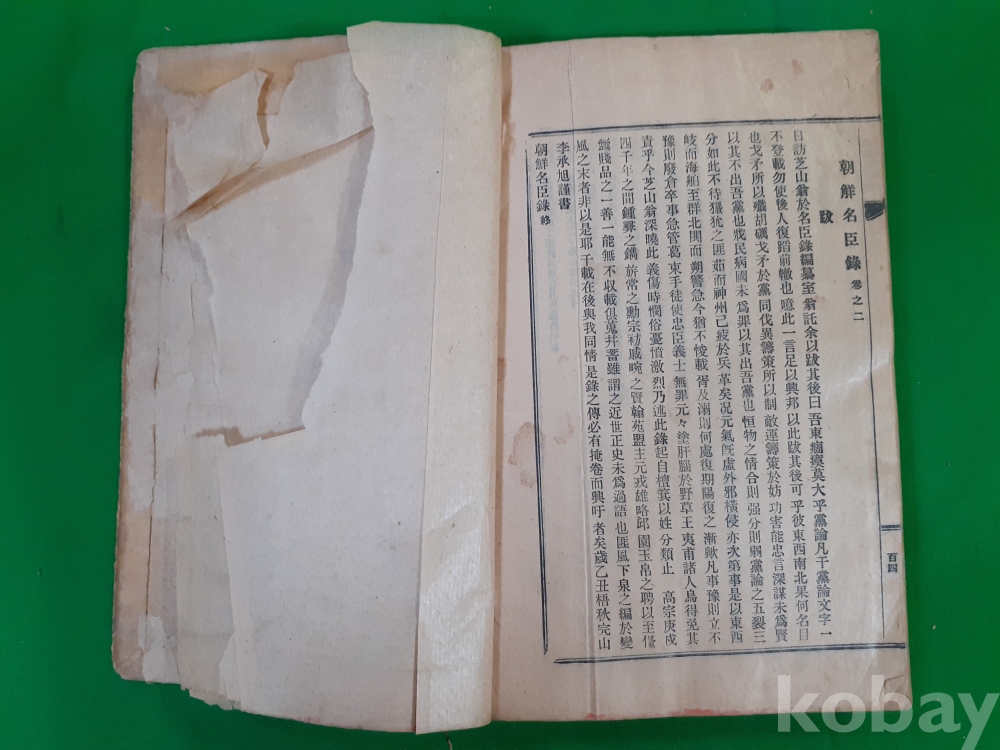 朝鮮名臣錄 卷之二
跋
日訪芝山翁於名臣錄編纂室翁託余以跋其後曰吾東痼瘼莫大乎黨論凡干黨論文字一
不登載勿使後人復蹈前轍也噫此一言足以興邦以此跋其後可乎彼東西南北果何名目
也戈矛所以殲胡礪戈矛於黨同伐異籌策所以制敵運籌策於妨功害能忠言深謀未爲賢
以其不出吾黨也戕民病國未爲罪以其出吾黨也恒物之情合則强分則弱黨論之五裂三
分如此不待玁狁之匪茹而神州已疲於兵革矣况元氣旣虛外邪橫侵亦次第事是以東西
岐而海船至群北鬨而朔警急今猶不悛載胥及溺則何處復期陽復之漸歟凡事豫則立不
豫則廢倉卒事急管葛束手徒使忠臣義士無罪元々塗肝腦於野草王夷甫諸人烏得免其
責乎今芝山翁深曉此義傷時憫俗憂憤激烈乃述此錄起自檀箕以姓分類止高宗庚戌
四千年之間鍾彝之鐫旂常之勳宗祊戚畹之賢翰苑盟主元戎雄略邱園玉帛之聘以至
賤品之一善一能無不収載俱蒐幷蓄雖謂之近世正史未爲過語也匪風下泉之編於變
風之末者非以是耶千載在後與我同情是錄之傳必有掩卷而興吁者矣歲乙丑梧秋完山
李承旭謹書
朝鮮名臣錄 終
百四
kobay